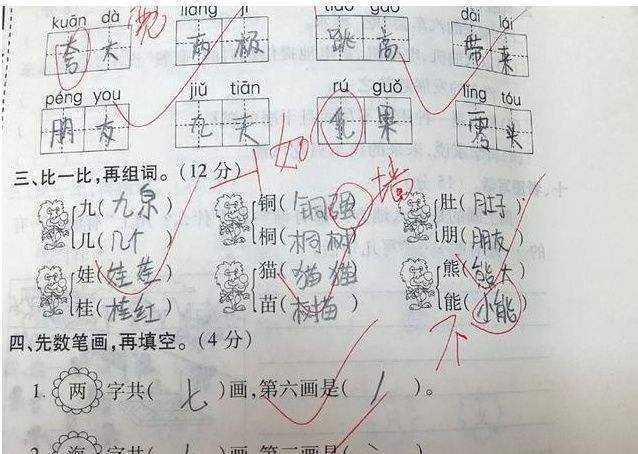 kuān dà liǎng jí tiào gāo dài lái
夸 大 两 极 跳 高 带 来
宽
péng you jiǔ tiān rú guǒ líng tóu
朋 友 九 天 果 零 头
如
三、比一比,再组词。(12 分)
九(九泉) 铜(铜强) 肚(肚子)
墙
几(几个) 桐(桐树) 朋(朋友)
娃(娃) 猫(猫猫) 熊(熊大)
桂(桂红) 苗(树苗) 能(小能)
不
四、先数笔画,再填空。(4 分)
1. 两 字共( 七 )画,第六画是( 丿 )。
2. 海 字共( )画,第二画是( )